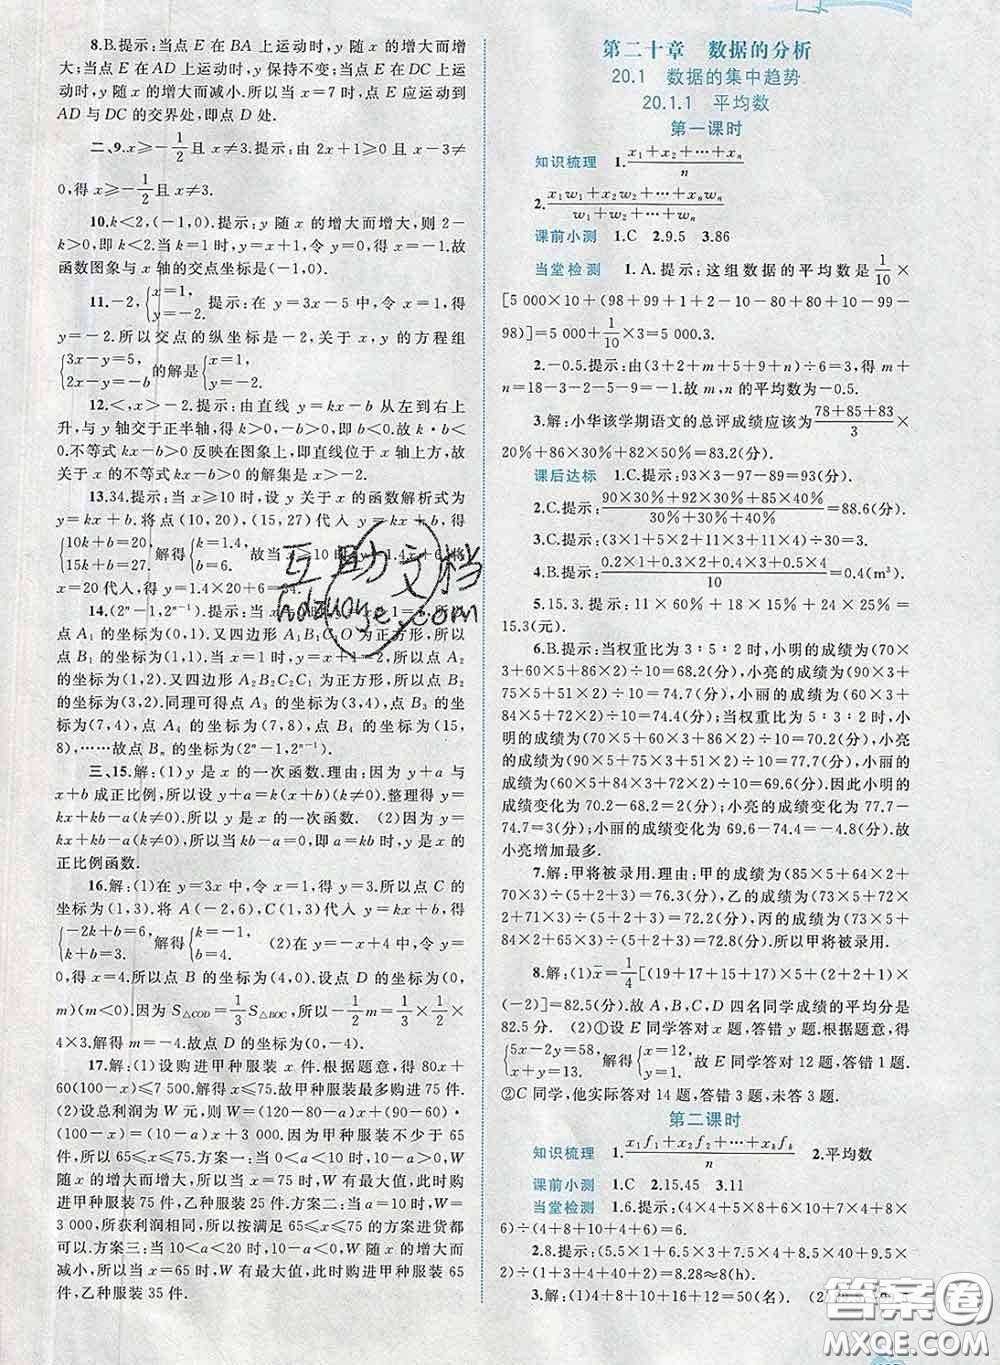 8.B.提示:当点 E 在 BA 上运动时,y 随 x 的增大而增
大;当点 E 在 AD 上运动时,y 保持不变;当点 E 在 DC 上运
动时,y 随 x 的增大而减小.所以当 x=7 时,点 E 应运动到
AD 与 DC 的交界处,即点 D 处.
二、9.x≥-1/2 且 x≠3.提示:由 2x+1≥0 且 x-3≠
0,得 x≥-1/2 且 x≠3.
10.k<2,(-1,0).提示:y 随 x 的增大而增大,则 2-
k>0,即 k<2.当 k=1 时,y=x+1,令 y=0,得 x=-1.故
函数图象与 x 轴的交点坐标是(-1,0).
11.-2,{x=1, y=-2. 提示:在 y=3x-5 中,令 x=1,得
y=-2.所以交点的纵坐标是-2,关于 x,y 的方程组
{3x-y=5, 2x-y=-b 的解是{x=1, y=-2.
12.<,x>-2.提示:由直线 y=kx-b 从左向右上
升,与 y 轴交于正半轴,得 k>0,-b>0,即 b<0.故 k·b<
0.不等式 kx-b>0 反映在图象上,即直线位于 x 轴上方,故
关于 x 的不等式 kx-b>0 的解集是 x>-2.
13.34.提示:当 x≥10 时,设 y 关于 x 的函数解析式为
y=kx+b.将点(10,20),(15,27)代入 y=kx+b,得
{10k+b=20, 15k+b=27. 解得{k=1.4, b=6. 故当 x≥10 时,y=1.4x+6.将
x=20 代入,得 y=1.4×20+6=34.
14.(2ⁿ-1,2ⁿ⁻¹).提示:当 x=0 时,y=x+1=1.所以
点 A₁ 的坐标为(0,1).又四边形 A₁B₁C₁O 为正方形,所以
点 B₁ 的坐标为(1,1).当 x=1 时,y=x+1=2.所以点 A₂
的坐标为(1,2).又四边形 A₂B₂C₂C₁ 为正方形,所以点 B₂
的坐标为(3,2).同理可得点 A₃ 的坐标为(3,4),点 B₃ 的坐
标为(7,4),点 A₄ 的坐标为(7,8),点 B₄ 的坐标为(15,
8),……故点 Bₙ 的坐标为(2ⁿ-1,2ⁿ⁻¹).
三、15.解:(1)y 是 x 的一次函数.理由:因为 y+a 与
x+b 成正比例,所以设 y+a=k(x+b)(k≠0).整理得 y=
kx+kb-a(k≠0).所以 y 是 x 的一次函数. (2)因为 y=
kx+kb-a(k≠0),所以当 kb-a=0,即 a=kb 时,y 是 x 的
正比例函数.
16.解:(1)在 y=3x 中,令 x=1,得 y=3.所以点 C 的
坐标为(1,3).将 A(-2,6),C(1,3)代入 y=kx+b,得
{-2k+b=6, k+b=3. 解得{k=-1, b=4. (2)在 y=-x+4 中,令 y=
0,得 x=4.所以点 B 的坐标为(4,0).设点 D 的坐标为(0,
m)(m<0).因为 S△COD=1/3 S△BOC,所以-1/2 m=1/3×1/2×
4×3.解得 m=-4.故点 D 的坐标为(0,-4).
17.解:(1)设购进甲种服装 x 件.根据题意,得 80x+
60(100-x)≤7 500.解得 x≤75.故甲种服装最多购进 75 件.
(2)设总利润为 W 元,则 W=(120-80-a)x+(90-60)·
(100-x)=(10-a)x+3 000.因为甲种服装不少于 65
件,所以 65≤x≤75.方案一:当 0<a<10 时,10-a>0,W
随 x 的增大而增大,所以当 x=75 时,W 有最大值,此时购进
甲种服装 75 件,乙种服装 25 件.方案二:当 a=10 时,W=
3 000,所获利润相同,所以按满足 65≤x≤75 的方案进货都
可以.方案三:当 10<a<20 时,10-a<0,W 随 x 的增大而
减小,所以当 x=65 时,W 有最大值,此时购进甲种服装 65
件,乙种服装 35 件.
第二十章 数据的分析
20.1 数据的集中趋势
20.1.1 平均数
第一课时
知识梳理 1.(x₁+x₂+…+xₙ)/n
2.(x₁w₁+x₂w₂+…+xₙwₙ)/(w₁+w₂+…+wₙ)
课前小测 1.C 2.9.5 3.86
当堂检测 1.A.提示:这组数据的平均数是 1/10×
[5 000×10+(98+99+1+2-10-80+80+10-99-
98)]=5 000+1/10×3=5 000.3.
2.-0.5.提示:由(3+2+m+5+9+n)÷6=3,得 m+
n=18-3-2-5-9=-1.故 m,n 的平均数为-0.5.
3.解:小华该学期语文的总评成绩应该为(78+85+83)/3×
20%+86×30%+82×50%=83.2(分).
课后达标 1.C.提示:93×3-97-89=93(分).
2.C.提示:(90×30%+92×30%+85×40%)/(30%+30%+40%)=88.6(分).
3.C.提示:(3×5+2×10+4×11)÷30≈3.
4.B.提示:(0.2×1+0.3×2+0.4×4+0.5×2+0.6×1)/10=0.4(m³).
5.15.3.提示:11×60%+18×15%+24×25%=
15.3(元).
6.B.提示:当权重比为 3∶5∶2 时,小明的成绩为(70×
3+60×5+86×2)÷10=68.2(分),小亮的成绩为(90×3+
75×5+51×2)÷10=74.7(分),小丽的成绩为(60×3+
84×5+72×2)÷10=74.4(分);当权重比为 5∶3∶2 时,小
明的成绩为(70×5+60×3+86×2)÷10=70.2(分),小亮
的成绩为(90×5+75×3+51×2)÷10=77.7(分),小丽的
成绩为(60×5+84×3+72×2)÷10=69.6(分).因此小明的
成绩变化为 70.2-68.2=2(分);小亮的成绩变化为 77.7-
74.7=3(分);小丽的成绩变化为 69.6-74.4=-4.8(分).故
小亮增加最多.
7.解:甲将被录用.理由:甲的成绩为(87×5+62×2+
70×3)÷(5+2+3)=76.9(分),乙的成绩为(70×5+
92×2+63×3)÷(5+2+3)=72.2(分),丙的成绩为(73×5+
84×2+65×3)÷(5+2+3)=72.8(分).所以甲将被录用.
8.解:(1)x̄=1/4[(19+17+15+17)×5+(2+2+1)×
(-2)]=82.5(分).故 A,B,C,D 四名同学成绩的平均分是
82.5 分. (2)①设 E 同学答对 x 题,答错 y 题.根据题意,得
{5x-2y=58, x+y=13. 解得{x=12, y=1. 故 E 同学答对 12 题,答错 1 题.
②C 同学,他实际答对 14 题,答错 3 题,未答 3 题.
第二课时
知识梳理 1.(x₁f₁+x₂f₂+…+xₖfₖ)/n 2.平均数
课前小测 1.C 2.15.45 3.11
当堂检测 1.6.提示:(4×4+5×8+6×10+7×4+8×
6)÷(4+8+10+4+6)=6.
2.8.提示:(5.5×1+6.5×3+7.5×4+8.5×20+9.5×
2)÷(1+3+4+20+2)=8.28≈8(h).
3.解:(1)4+8+10+16+12=50(名). (2)
互助文档
hdzuoye.com
答案圈
MXQE.COM